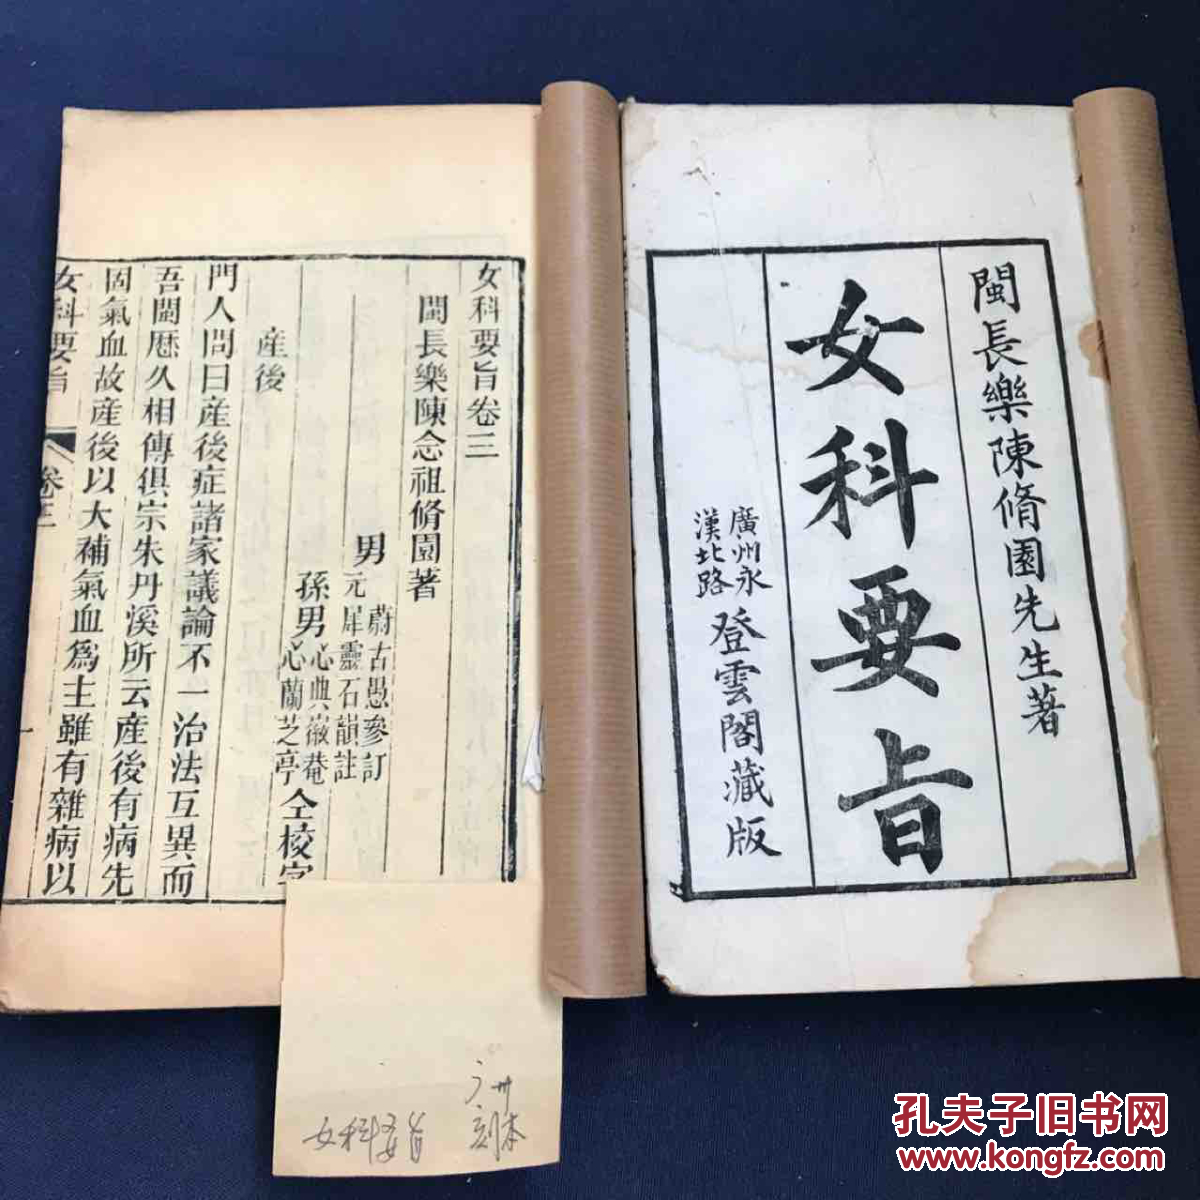 閩長樂陳脩園先生著
女科要旨
廣州永
漢北路
登雲閣藏版
女科要旨卷三
閩長樂陳念祖脩園著
男
蔚古愚參訂
元犀靈石韻註
孫男
心典徽菴
心蘭芝亭
仝校字
産後
門人問曰産後症諸家議論不一治法互異而
吾閩歷久相傳俱宗朱丹溪所云産後有病先
固氣血故産後以大補氣血爲主雖有雜病以
女科要旨
卷三
女科要旨
广州
刻本
孔夫子旧书网
www.kongfz.com